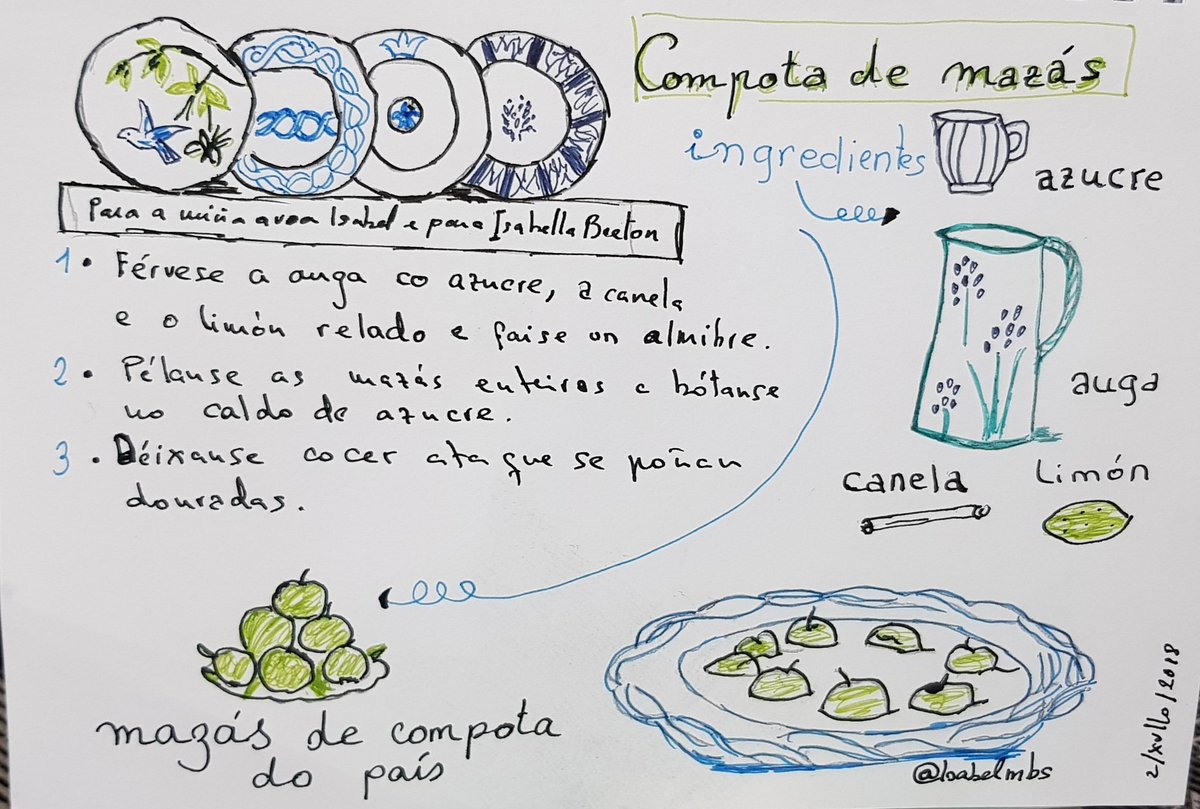 Compota de mazás
ingredientes
azucre
Para a miña avoa Isabel e para Isabella Beeton
1. Férvese a auga co azucre, a canela
e o limón relado e faise un almibre.
2. Pélanse as mazás enteiras e bótanse
no caldo de azucre.
3. Déixanse cocer ata que se poñan
douradas.
auga
canela
limón
mazás de compota
do país
@Isabelmbs
2/xullo/2018